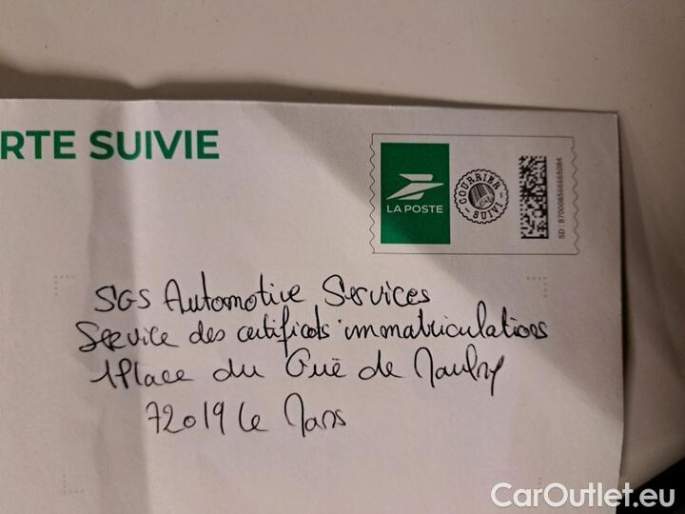 RTE SUIVIE
LA POSTE
COURRIER SUIVI
SGS Automotive Services
Service des certificats immatriculations
1 Place du Gué de Maulny
72019 Le Mans
CarOutlet.eu